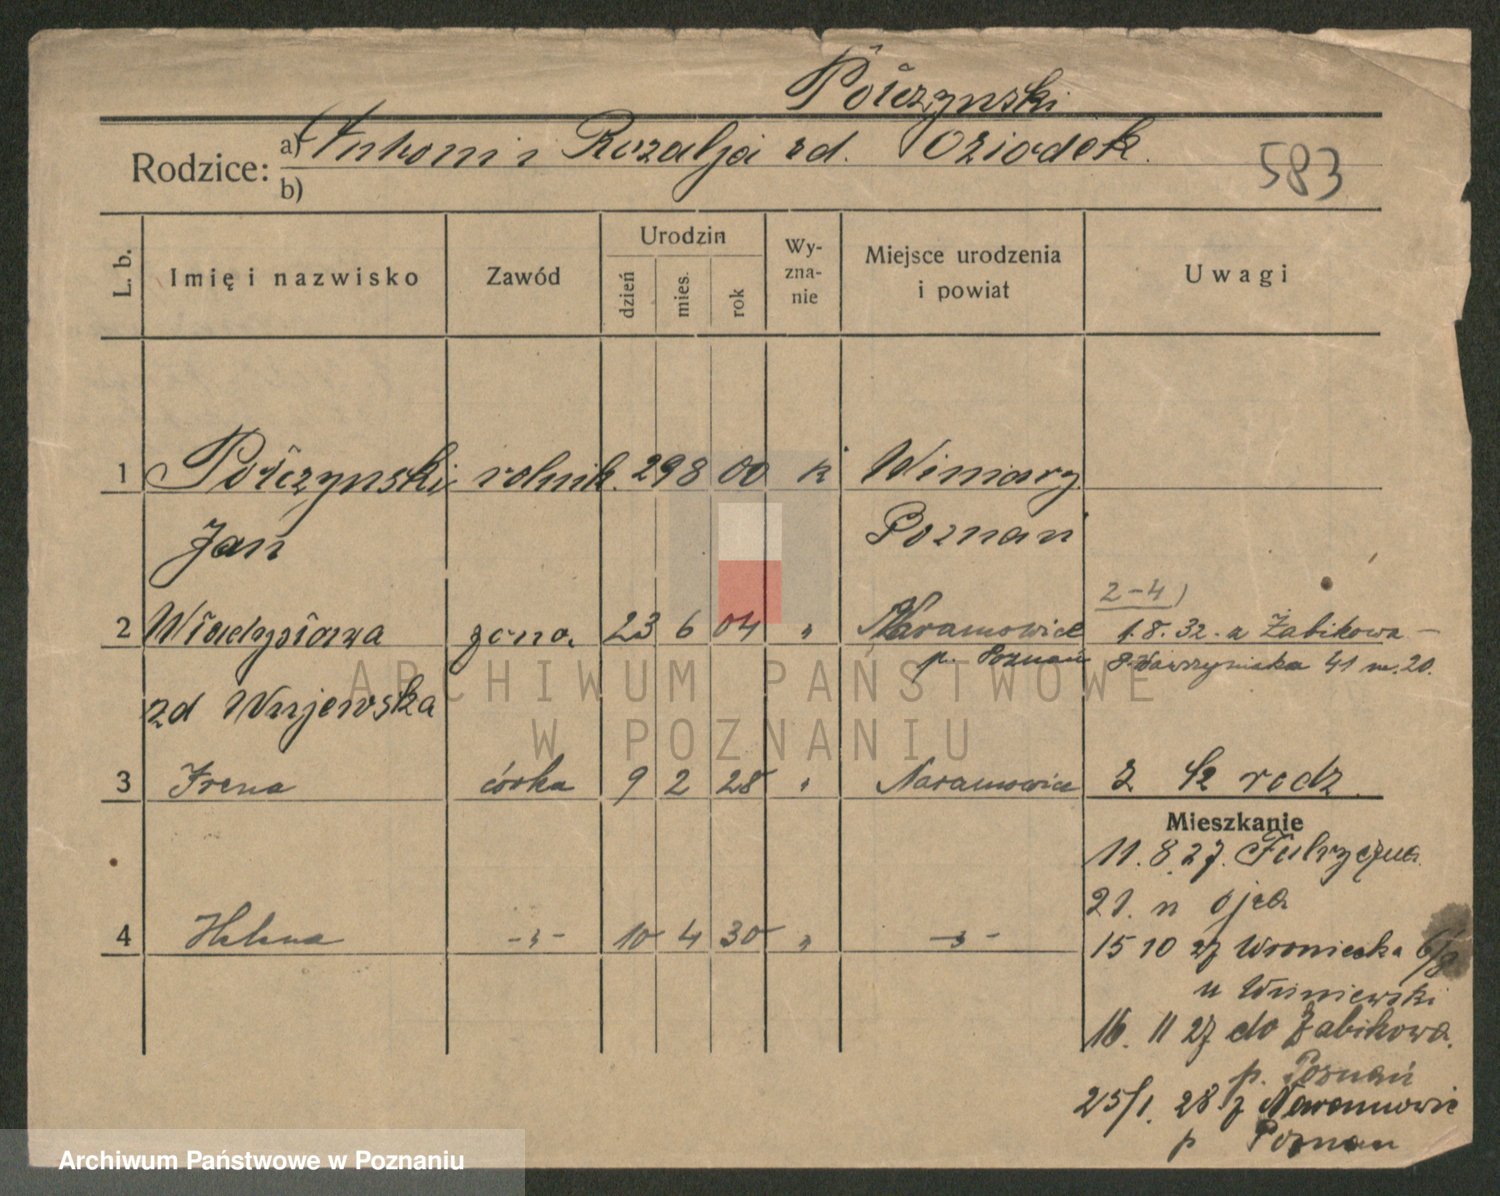 Połczynski
Rodzice: a) Antoni i Rozalja zd. Oziodek.
b)
583
L. b.
Imię i nazwisko
Zawód
Urodzin
dzień
mies.
rok
Wy-
zna-
nie
Miejsce urodzenia
i powiat
Uwagi
1 Połczynski rolnik. 29 8 00 k Winiary
Jan Poznań
2-4)
2 Władysława żona. 23 6 04 " Naramowice 1.8.32. a Żabikowa –
p. Poznań 41 m. 20.
zd Wujewska
3 Irena córka 9 2 28 " Naramowice z rodz.
Mieszkanie
11. 8. 27. Fabryczna
21. n ojca
4 Helena -"- 10 4 30 " -"-
15 10 27 Wroniecka 6/8
u Wiśniewski
16. 11 27 do Żabikowa.
p. Poznań
25/1. 28. z Naramowic
p Poznan
ARCHIWUM PAŃSTWOWE
W POZNANIU
Archiwum Państwowe w Poznaniu